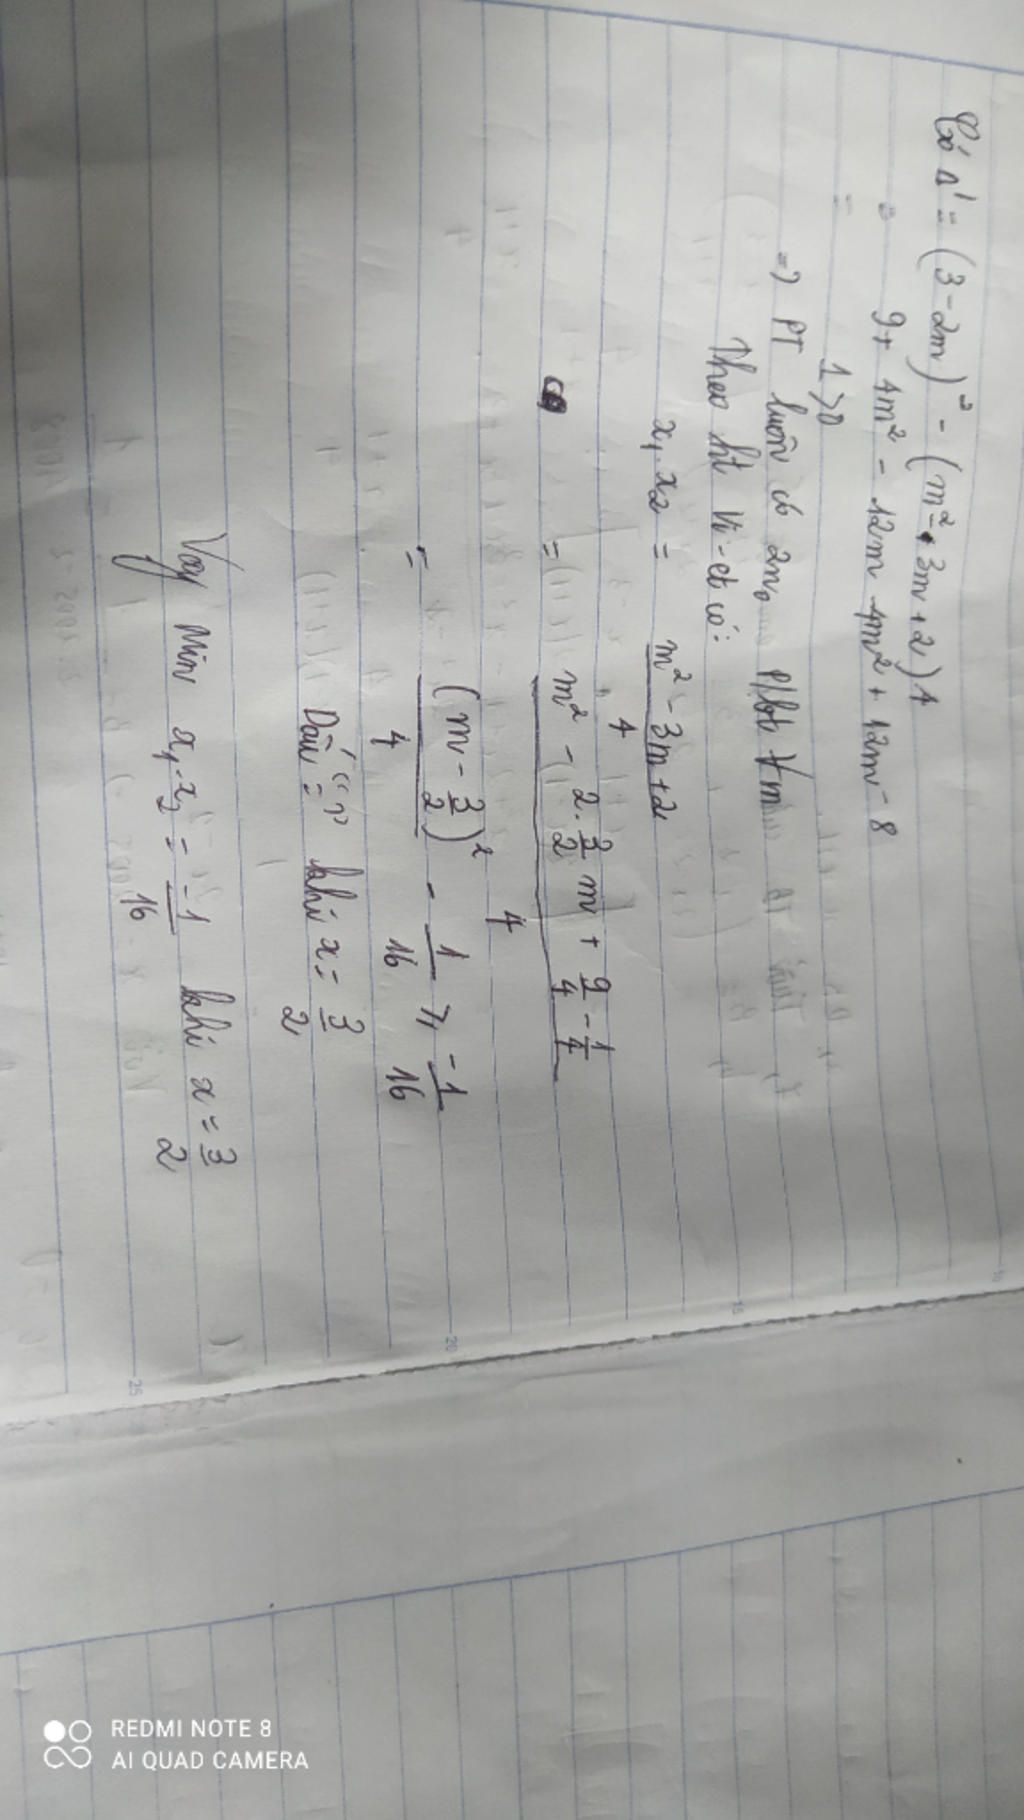 Có Δ' = (3-2m)² - (m² - 3m + 2)4
= 9 + 4m² - 12m - 4m² + 12m - 8
= 1 > 0
=> PT luôn có 2 no p/bt ∀m
Theo ht Vi-et có:
x₁.x₂ = (m² - 3m + 2)/4
= (m² - 2.3/2 m + 9/4 - 1/4)/4
= (m - 3/2)²/4 - 1/16 ≥ -1/16
Dấu "=" khi x = 3/2
Vậy Min x₁.x₂ = -1/16 khi x = 3/2
15
20
25
REDMI NOTE 8
AI QUAD CAMERA